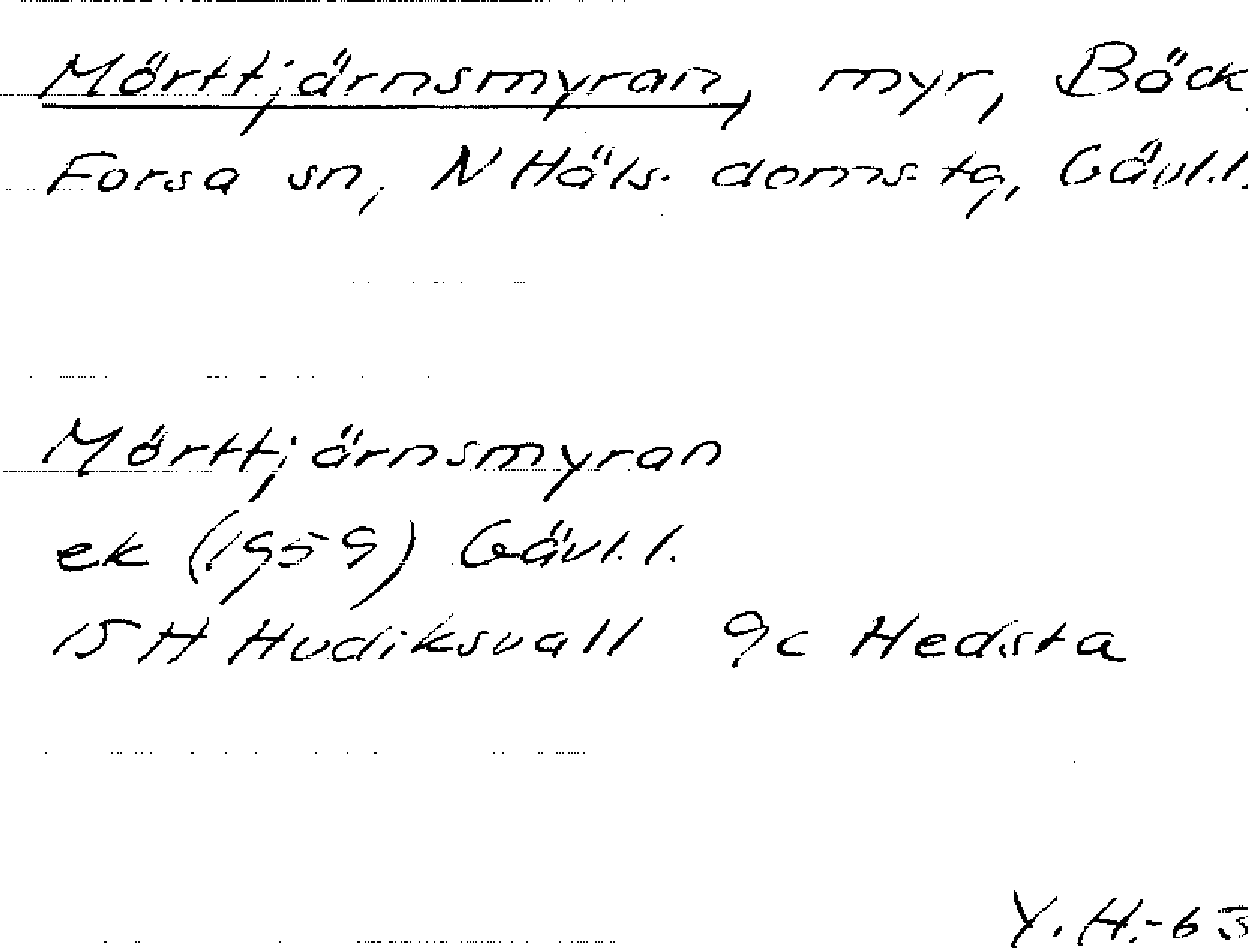 Mörttjärnsmyran, myr, Bäck,
Forsa sn, N Häls. doms. tg, Gävl.l.
Mörttjärnsmyran
ek (1959) Gävl.l.
15 H Hudiksvall 9c Hedsta
Y.H.-63